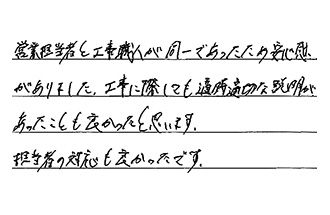 営業担当者と工事職人が同一であったため安心感
がありました。工事に際しても適時適切な説明が
あったことも良かったと思います。
担当者の対応も良かったです。